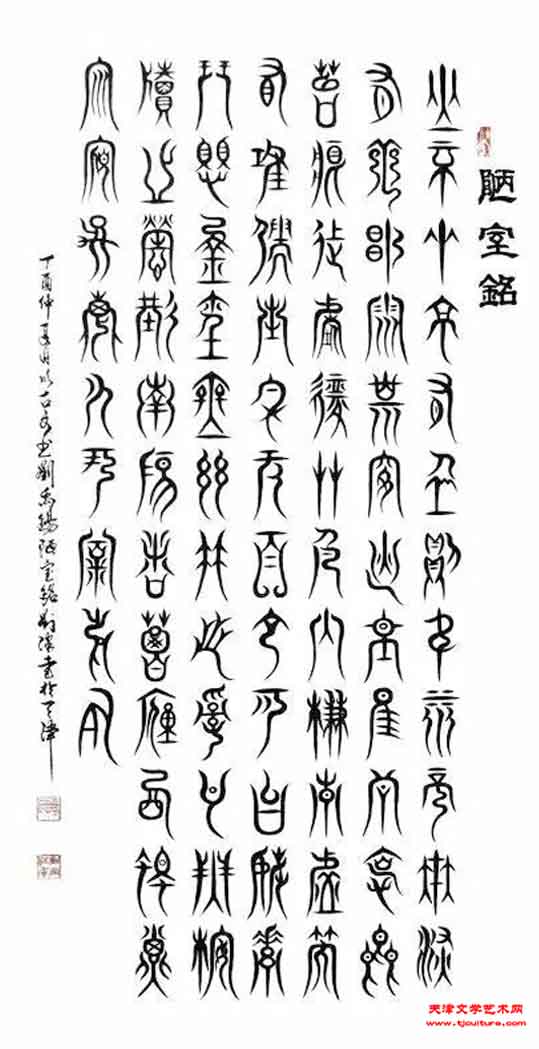 陋室銘
山不在高有仙則名水不在深
有龍則靈斯是陋室惟吾德馨
苔痕上階綠草色入簾青談笑
有鴻儒往來無白丁可以調素
琴閱金經無絲竹之亂耳無案
牘之勞形南陽諸葛廬西蜀子
雲亭孔子云何陋之有
丁酉仲夏月以古文书劉禹錫陋室銘書於天津
天津文学艺术网
www.tjculture.com